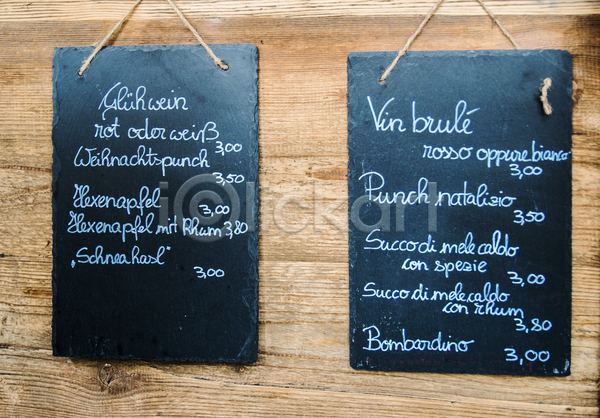 Glühwein
rot oder weiß
3,00
Weihnachtspunch
3,50
Hexenapfel
3,00
Hexenapfel mit Rhum 3,80
„Schneahasl"
3,00
Vin brulé
rosso oppure bianco
3,00
Punch natalizio
3,50
Succo di mele caldo
con spezie
3,00
Succo di mele caldo
con rhum
3,80
Bombardino
3,00
iclickart